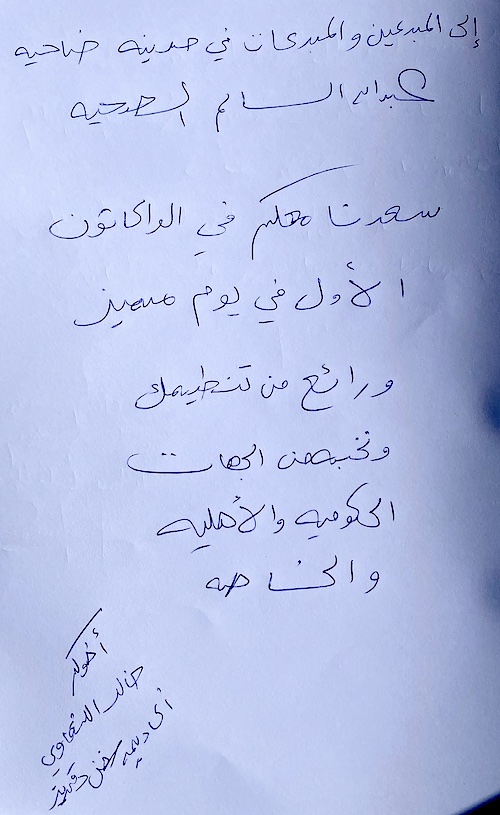 إلى المبدعين والمبدعات في مدينة ضاحيه
عبدالله السالم الصحيه
سعدنا معكم في الواكاثون
الأول في يوم مميز
ورائع من تنظيمك
ونخبه من الجهات
الحكوميه والأهليه
والخاصه
أخوكم
خالد
أكاديمية